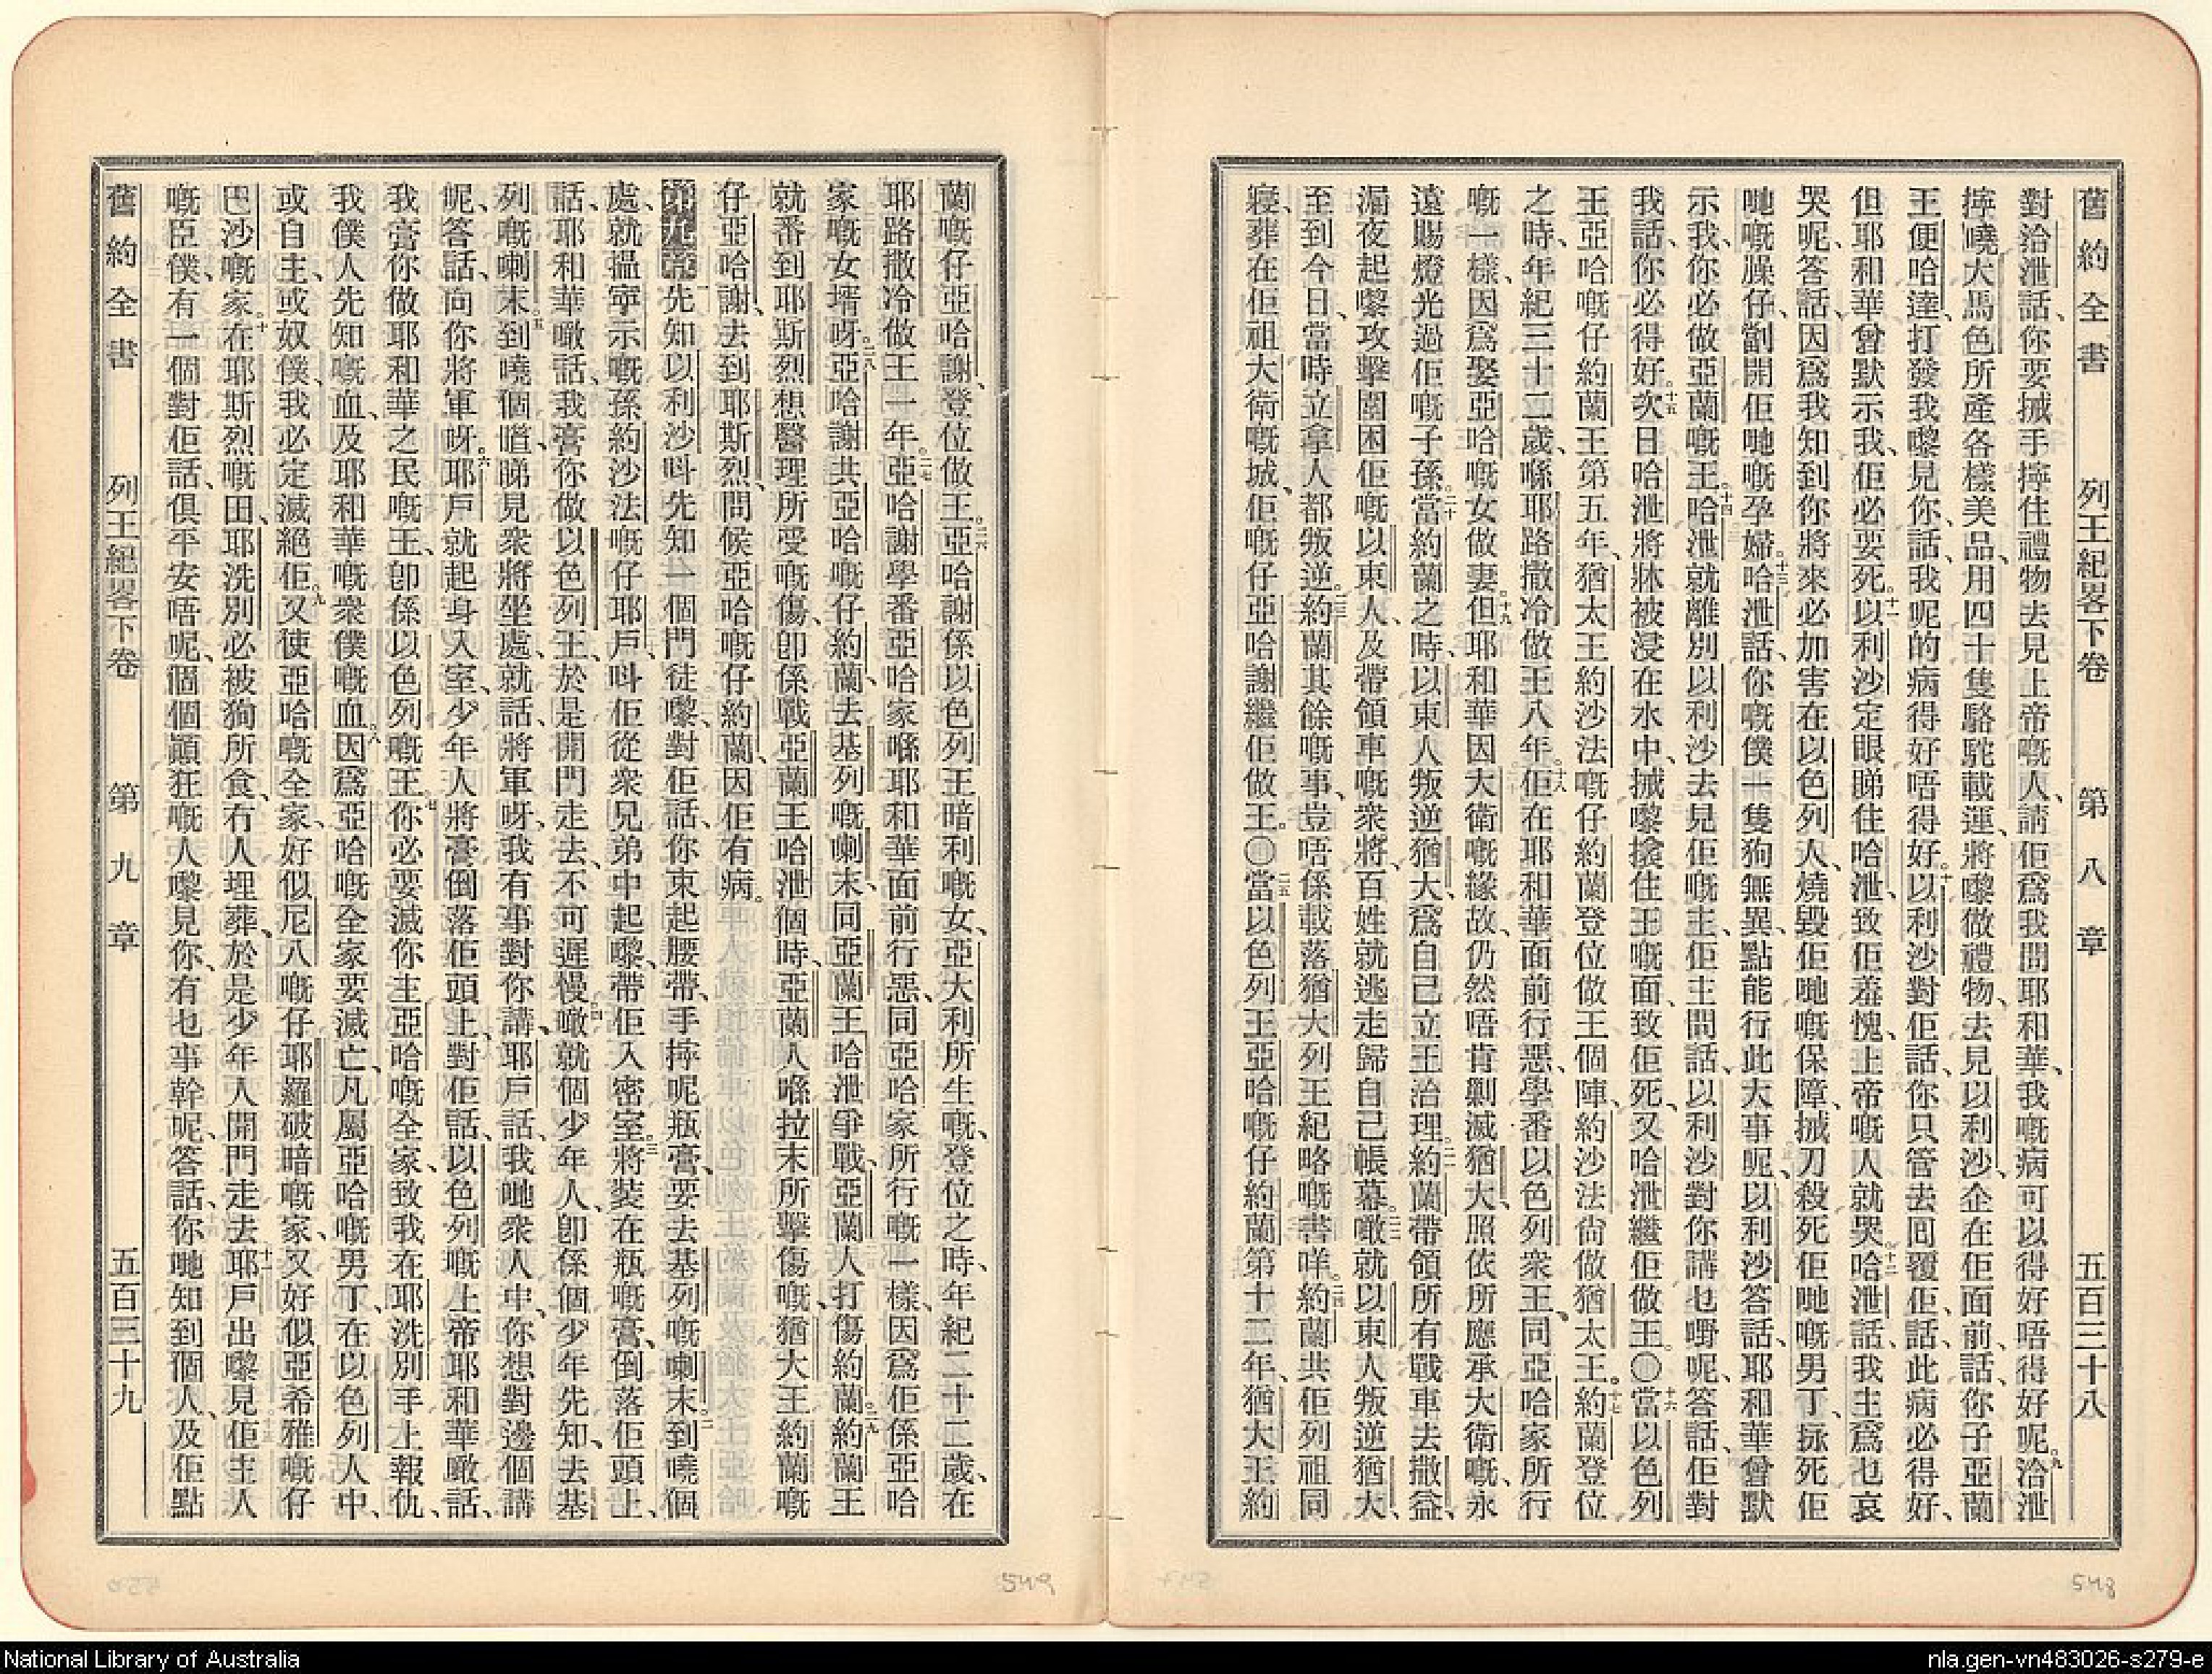 舊約全書 列王紀畧下卷 第八章 五百三十八
對洽泄話、你要搣手擰住禮物去見上帝嘅人、請佢爲我問耶和華、我嘅病可以得好唔得好呢。九洽泄
擰嘵大馬色所產各樣美品、用四十隻駱駝載運、將嚟做禮物、去見以利沙、企在佢面前、話、你子亞蘭
王便哈達、打發我嚟見你、話、我呢的病得好唔得好。十以利沙對佢話、你只管去囘覆佢、話、此病必得好、
但耶和華曾默示我、佢必要死。十一以利沙定眼睇住哈泄、致佢羞愧、上帝嘅人就哭。十二哈泄話、我主爲乜哀
哭呢、答話、因爲我知到你將來必加害在以色列人、燒毀佢哋嘅保障、搣刀殺死佢哋嘅男丁、揼死佢
哋嘅臊仔、劏開佢哋嘅孕婦。十三哈泄話、你嘅僕一隻狗無異、點能行此大事呢、以利沙答話、耶和華曾默
示我、你必做亞蘭嘅王。十四哈泄就離別以利沙去見佢嘅主、佢主問話、以利沙對你講乜嘢呢、答話、佢對
我話、你必得好。十五次日哈泄將牀被浸在水中、搣嚟揜住王嘅面、致佢死、又哈泄繼佢做王。〇十六當以色列
王亞哈嘅仔約蘭王第五年、猶太王約沙法嘅仔約蘭登位做王個陣、約沙法尙做猶太王。十七約蘭登位
之時、年紀三十二歲、喺耶路撒冷做王八年。十八佢在耶和華面前行惡、學番以色列衆王、同亞哈家所行
嘅一樣、因爲娶亞哈嘅女做妻。十九但耶和華因大衛嘅緣故、仍然唔肯剿滅猶大、照依所應承大衛嘅、永
遠賜燈光過佢嘅子孫。二十當約蘭之時、以東人叛逆猶大、爲自己立王治理。二一約蘭帶領所有戰車去撒益、
漏夜起嚟攻擊圍困佢嘅以東人、及帶領車嘅衆將、百姓就逃走歸自己帳幕。二二噉就以東人叛逆猶大、
至到今日、當時立拿人都叛逆。二三約蘭其餘嘅事、豈唔係載落猶大列王紀略嘅書咩。二四約蘭共佢列祖同
寢、葬在佢祖大衛嘅城、佢嘅仔亞哈謝繼佢做王。〇二五當以色列王亞哈嘅仔約蘭第十二年、猶大王約
蘭嘅仔亞哈謝、登位做王。二六亞哈謝係以色列王暗利嘅女、亞大利所生嘅、登位之時、年紀二十二歲、在
耶路撒冷做王一年。二七亞哈謝學番亞哈家喺耶和華面前行惡、同亞哈家所行嘅一樣、因爲佢係亞哈
家嘅女壻呀。二八亞哈謝共亞哈嘅仔約蘭、去基列嘅喇末、同亞蘭王哈泄爭戰、亞蘭人打傷約蘭。二九約蘭王
就番到耶斯烈、想醫理所受嘅傷、卽係戰亞蘭王哈泄個時、亞蘭人喺拉末所擊傷嘅、猶大王約蘭嘅
仔亞哈謝、去到耶斯烈、問候亞哈嘅仔約蘭、因佢有病。
第九章 一先知以利沙呌先知一個門徒嚟、對佢話、你束起腰帶、手擰呢瓶膏、要去基列嘅喇末。二到嘵個
處、就揾寧示嘅孫約沙法嘅仔耶戶、呌佢從衆兄弟中起嚟、帶佢入密室。三將裝在瓶嘅膏、倒落佢頭上、
話、耶和華噉話、我膏你做以色列王、於是開門走去、不可遲慢。四噉就個少年人、卽係個少年先知、去基
列嘅喇末。五到嘵個噵、睇見衆將坐處、就話、將軍呀、我有事對你講、耶戶話、我哋衆人中、你想對邊個講
呢、答話、向你將軍呀。六耶戶就起身入室、少年人將膏倒落佢頭上、對佢話、以色列嘅上帝耶和華噉話、
我膏你做耶和華之民嘅王、卽係以色列嘅王。七你必要滅你主亞哈嘅全家、致我在耶洗別手上報仇、
我僕人先知嘅血、及耶和華嘅衆僕嘅血。八因爲亞哈嘅全家要滅亡、凡屬亞哈嘅男丁、在以色列人中、
或自主、或奴僕、我必定滅絕佢。九又使亞哈嘅全家、好似尼八嘅仔耶羅破暗嘅家、又好似亞希雅嘅仔
巴沙嘅家。十在耶斯烈嘅田、耶洗別必被狗所食、冇人埋葬、於是少年人開門走去。十一耶戶出嚟見佢主人
嘅臣僕、有一個對佢話、俱平安唔呢、個個顚狂嘅人嚟見你、有乜事幹呢、答話、你哋知到個人、及佢點
舊約全書 列王紀畧下卷 第九章 五百三十九
548
549
National Library of Australia
nla.gen-vn483026-s279-e